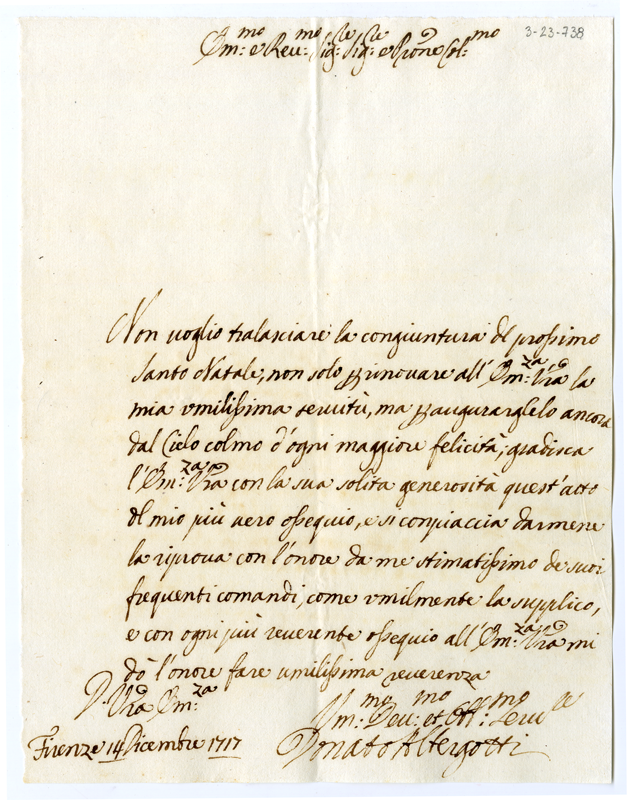 3-23-738
Em:mo e Reu:mo Sig:re Sig:re e Prone Col:mo
Non uoglio tralasciare la congiuntura del prossimo
Santo Natale, non solo p rinouare all'Em:za Vra la
mia vmilissima seruitù, ma p augurarglelo ancora
dal Cielo colmo d'ogni maggiore felicità; gradisca
l'Em:za Vra con la sua solita generosità quest'atto
del mio più uero ossequio, e si conpiaccia darmene
la riproua con l'onore da me stimatissimo de suoi
frequenti comandi, come vmilmente la supplico,
e con ogni più reuerente ossequio all'Em:za Vra mi
dò l'onore fare umilissima reuerenza
D. Vra Em:za
Vm:mo Deu:mo et Ob:mo Seru:re
Firenze 14 Dicembre 1717
Donato Altergotti